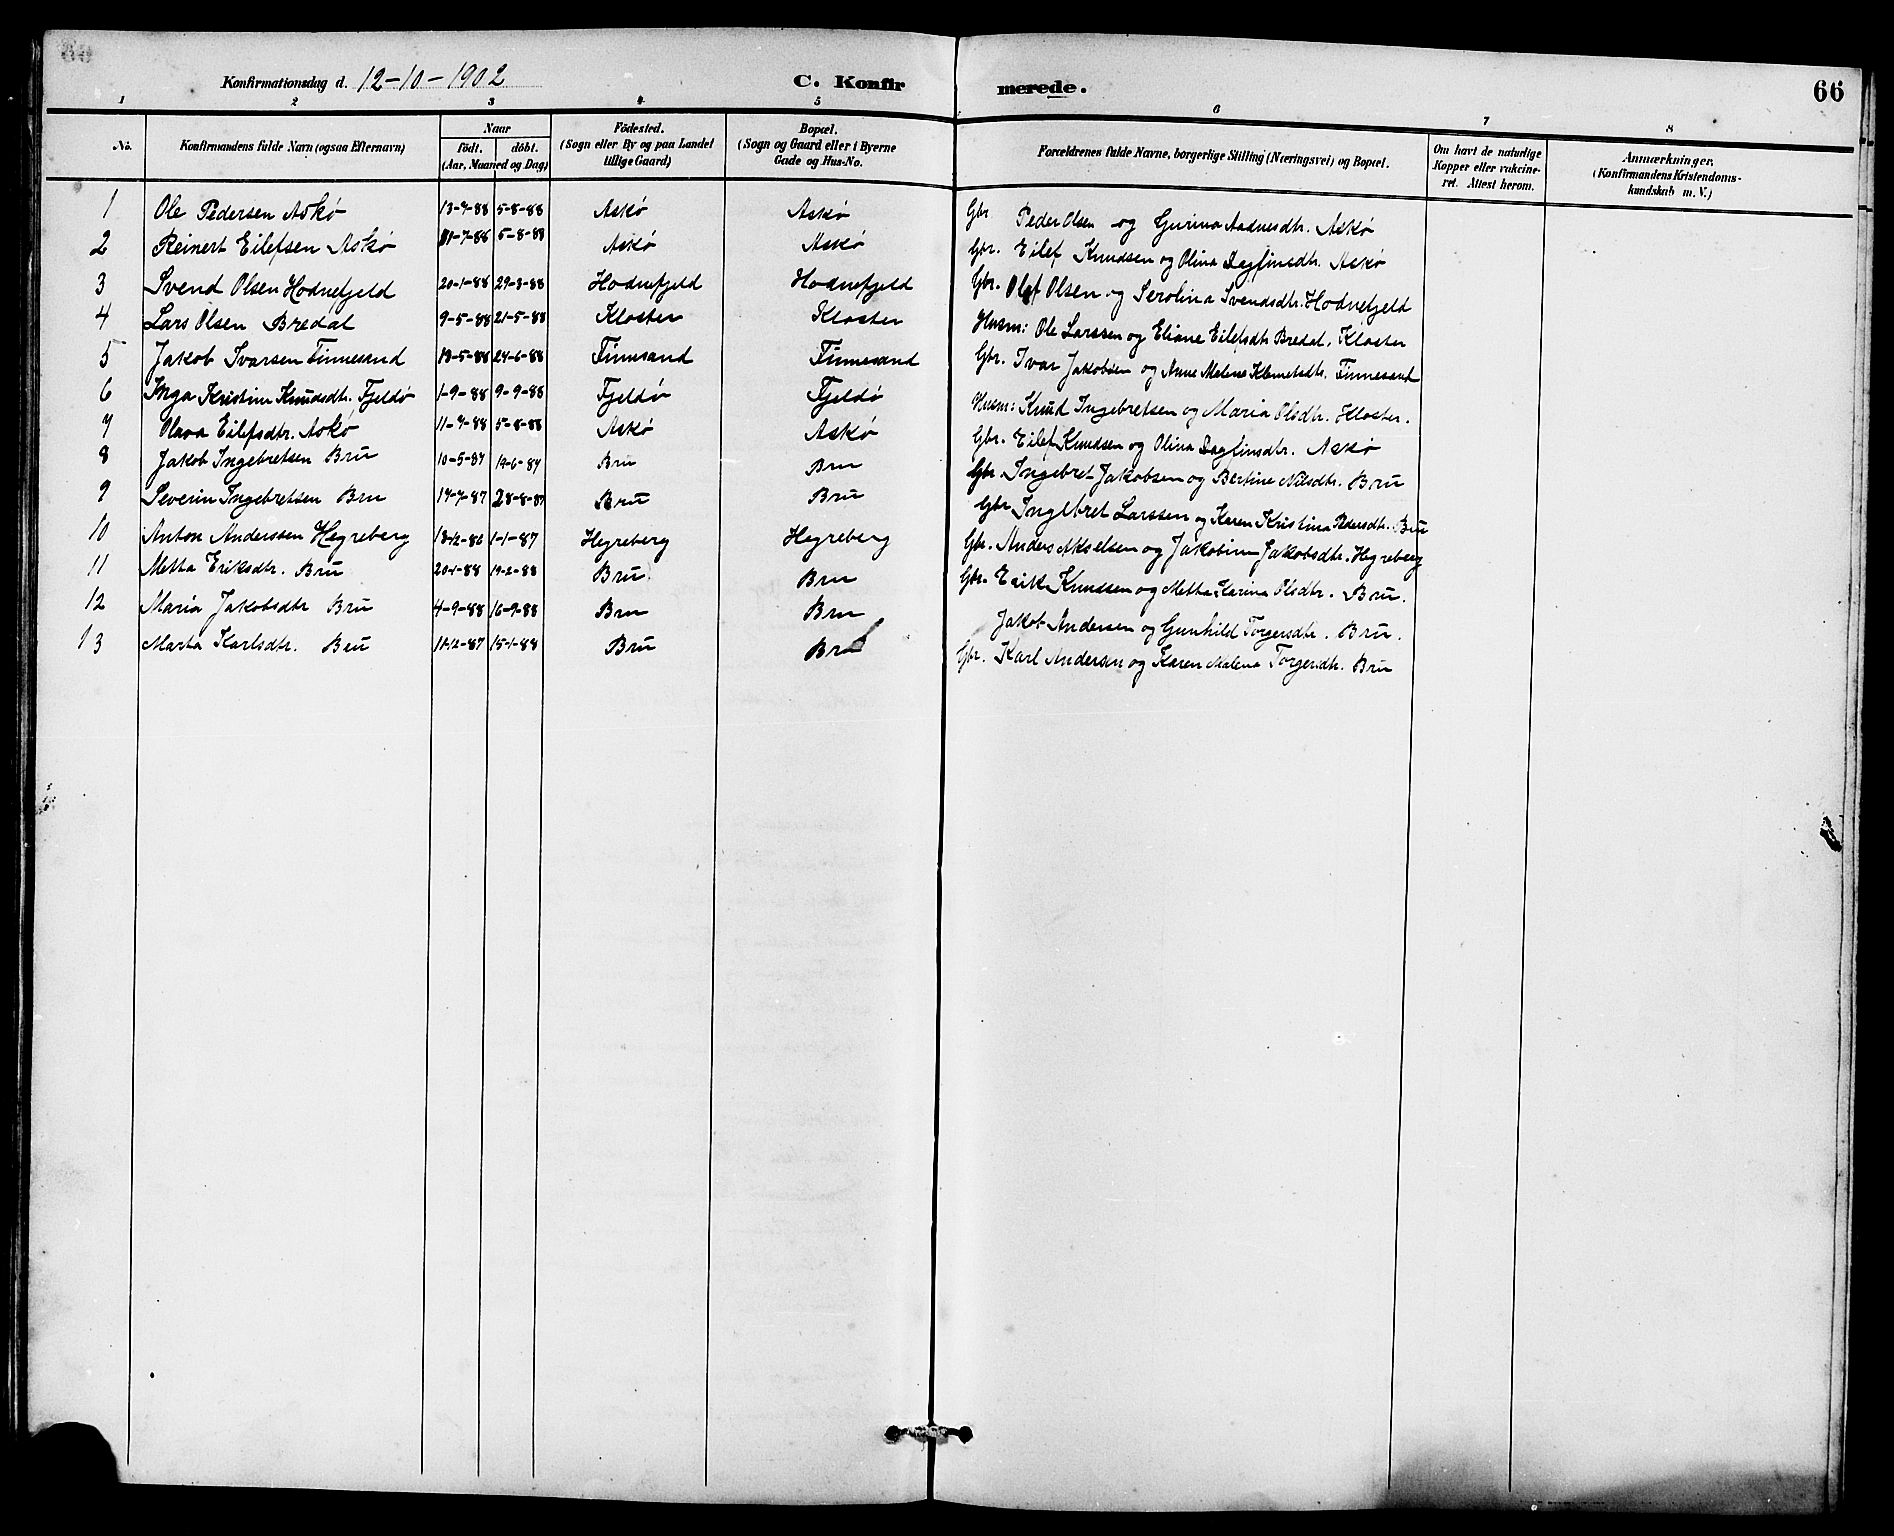 Konfirmationsdag d. 12-10-1902 C. Konfirmerede. 66
1 2 3 4 5 6 7 8
No. Konfirmandens fulde Navn (ogsaa Efternavn) Naar födt. döbt. (Aar, Maaned og Dag) Födested. (Sogn eller By og paa Landet tillige Gaard) Bopæl. (Sogn og Gaard eller i Byerne Gade og Hus-No. Forældrenes fulde Navne, borgerlige Stilling (Næringsvei) og Bopæl. Om havt de naturlige Kopper eller vakcineret. Attest herom. Anmærkninger, (Konfirmandens Kristendomskundskab m. V.)
1 Ole Pedersen Askö 13-7-88 5-8-88 Askö Askö Gbr. Peder Olsen og Gurina Aadnesdtr. Askö
2 Reinert Eilefsen Askö 11-7-88 5-8-88 Askö Askö Gbr. Eilef Knudsen og Olina Dagfinsdtr. Askö
3 Svend Olsen Hodnefjeld 20-1-88 29-3-88 Hodnefjeld Hodnefjeld Gbr. Olsen og Serolina Svendsdtr. Hodnefjeld
4 Lars Olsen Bredal 9-5-88 21-5-88 Kloster Kloster Husm: Ole Larssen og Eliane Eilefsdtr Bredal. Kloster
5 Jakob Ivarsen Finnesand 13-5-88 24-6-88 Finnesand Finnesand Gbr. Ivar Jakobsen og Anne Malene Klemetsdtr. Finnesand
6 Inga Kristine Knudsdtr. Fjeldö 1-9-88 9-9-88 Fjeldö Fjeldö Husm: Knud Ingebretsen og Maria Olsdtr. Kloster.
7 Olava Eilefsdtr. Askö 11-7-88 5-8-88 Askö Askö Gbr. Eilef Knudsen og Olina Dagfinsdtr. Askö
8 Jakob Ingebretsen Bru 10-5-87 19-6-87 Bru Bru Gbr Ingebret Jakobsen og Bertine Nilsdtr. Bru
9 Severin Ingebretsen Bru 17-7-87 28-8-87 Bru Bru Gbr Ingebret Larssen og Karen Kristina Pedersdtr. Bru
10 Anton Anderssen Hegreberg 13-12-86 1-1-87 Hegreberg Hegreberg Gbr. Anders Akselsen og Jakobine Jakobsdtr. Hegreberg
11 Metta Eriksdtr. Bru 20-1-88 19-2-88 Bru Bru Gbr. Erik Knudsen og Metha Karina Olsdtr. Bru.
12 Maria Jakobsdtr Bru 4-9-88 16-9-88 Bru Bru Jakob Andersen og Gunhild Torgersdtr. Bru.
13 Marta Karlsdtr. Bru 11-12-87 15-1-88 Bru Bru Gbr. Karl Andersen og Karen Malena Torgersdtr. Bru